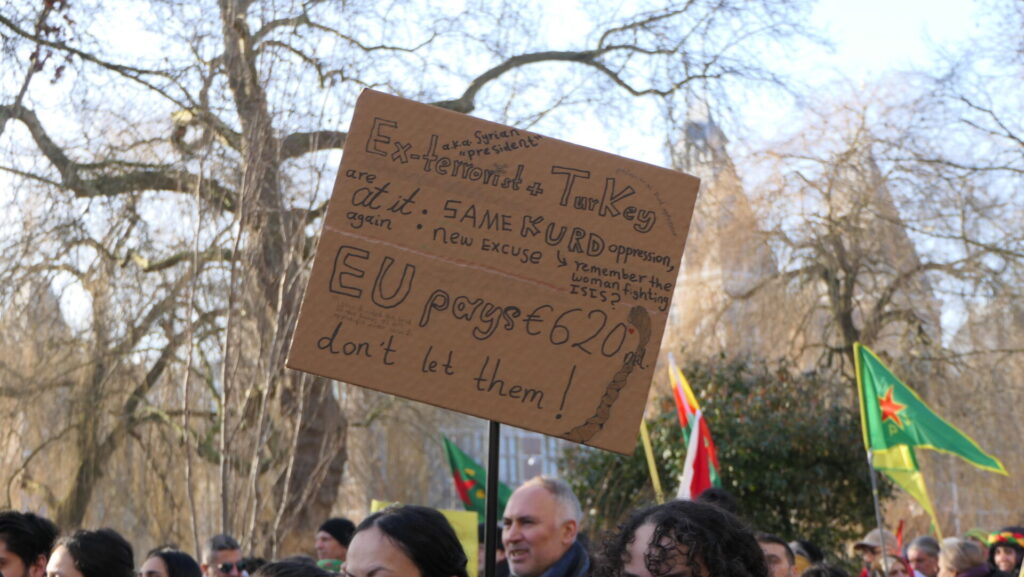 Ex-terrorist + TurKey
aka Syrian
"president"
are
at it :
again
SAME KURD oppression,
new EXCUSE ↳ remember the
woman fighting
ISIS?
EU pays € 620
don't let them!